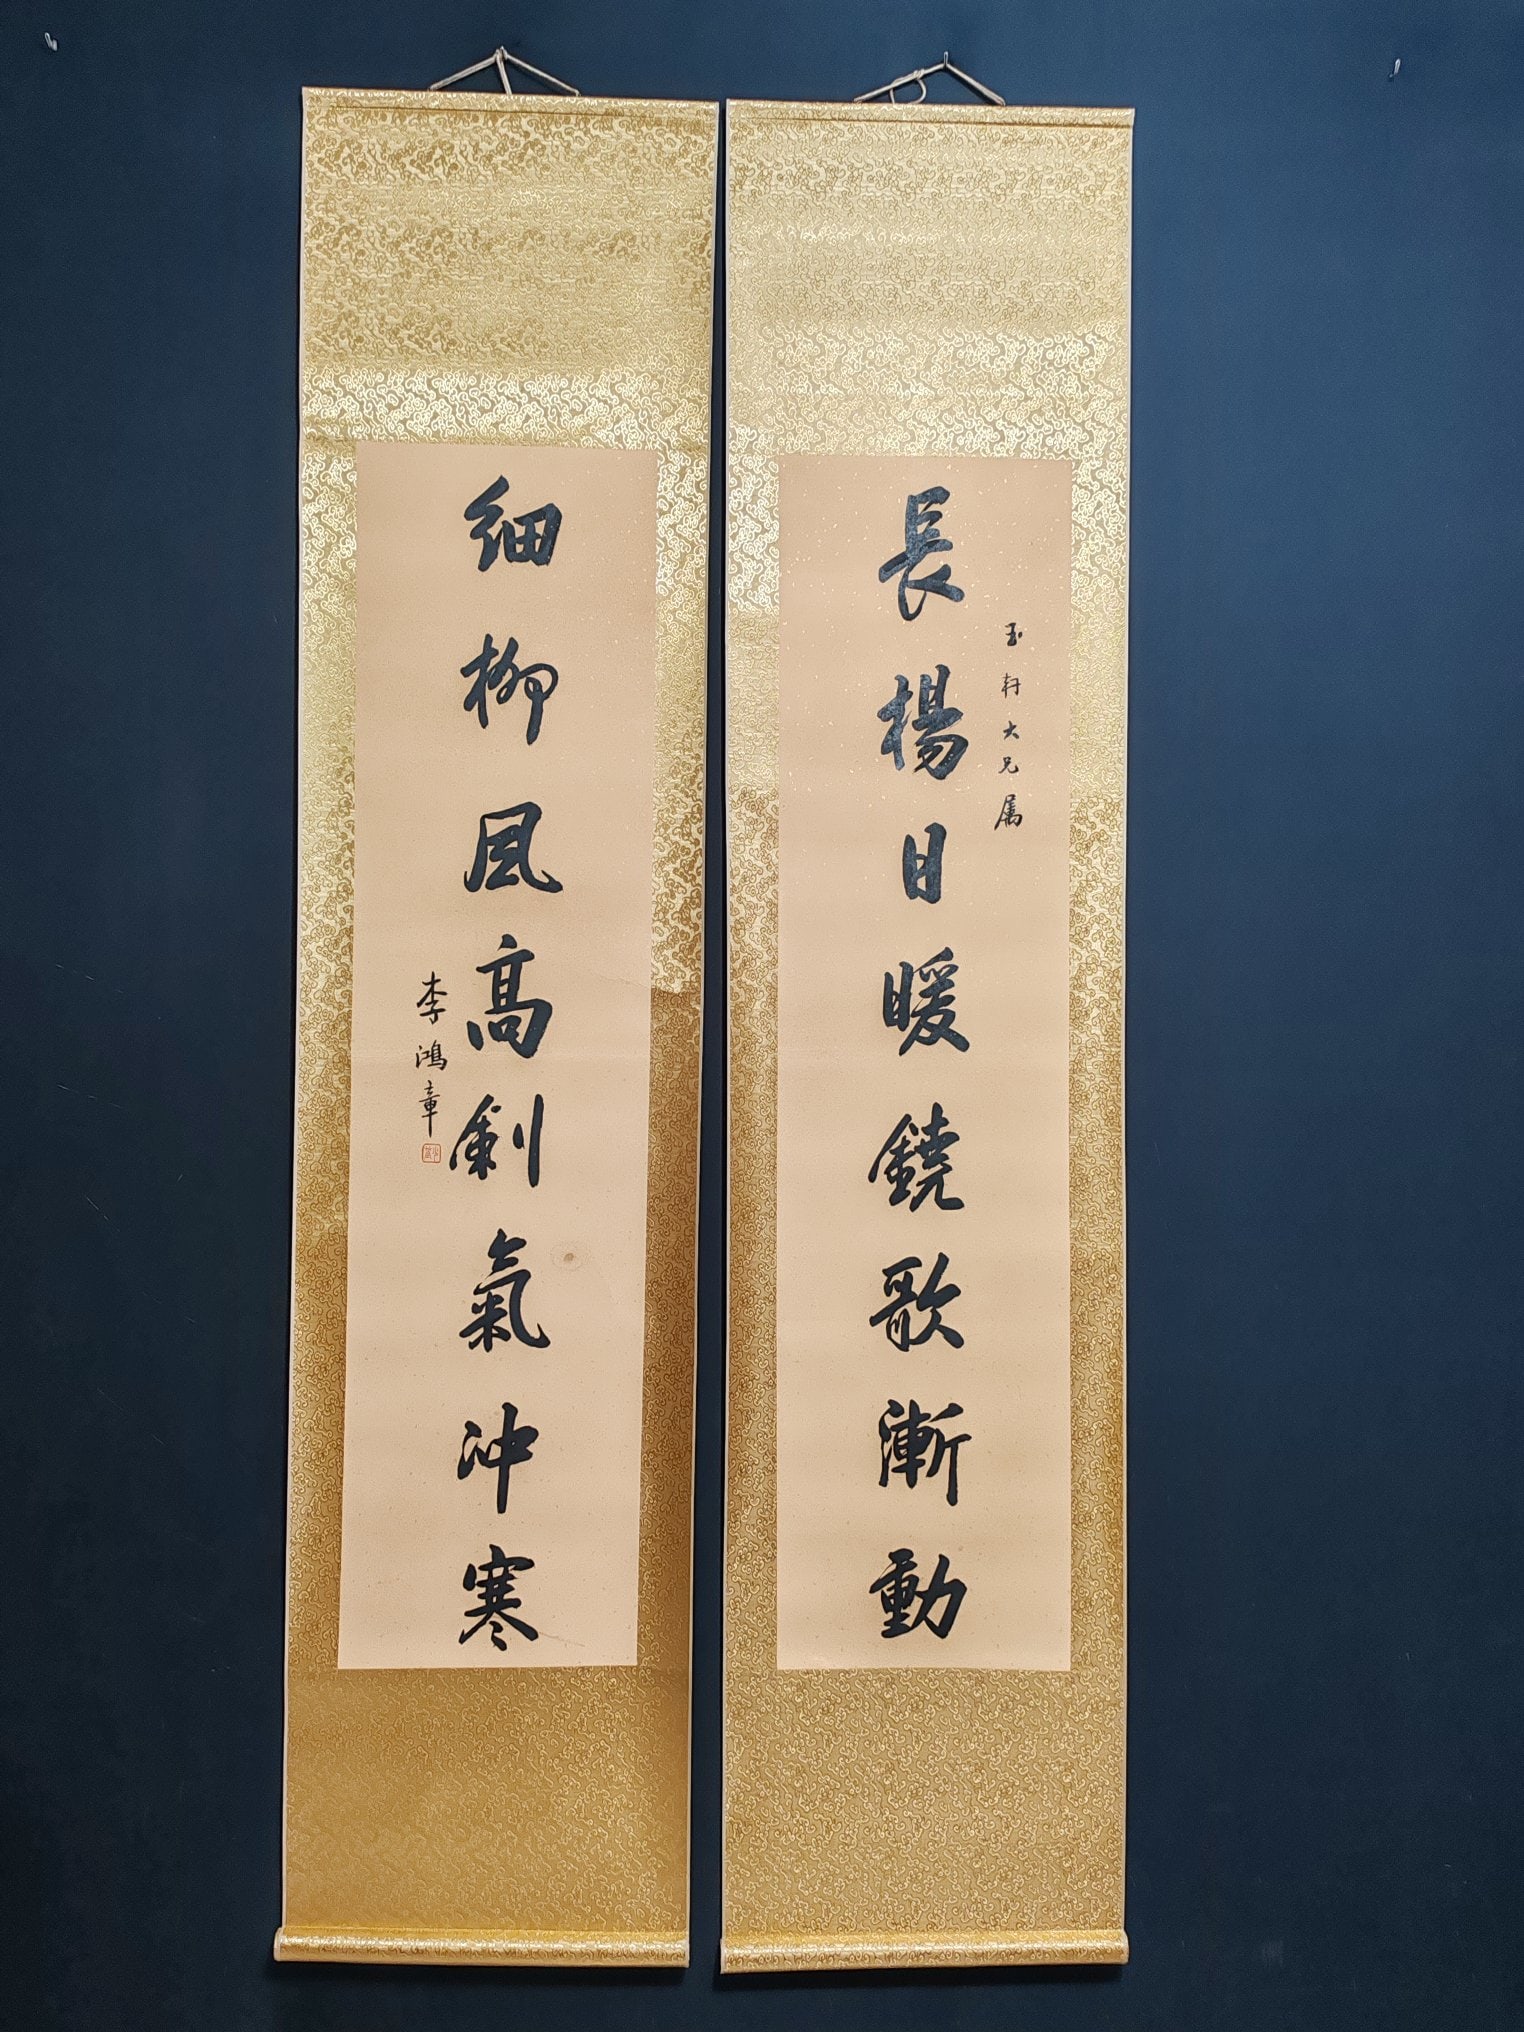 長楊日暖鐃歌漸動
玉軒大兄屬
細柳風高劍氣冲寒
李鴻章